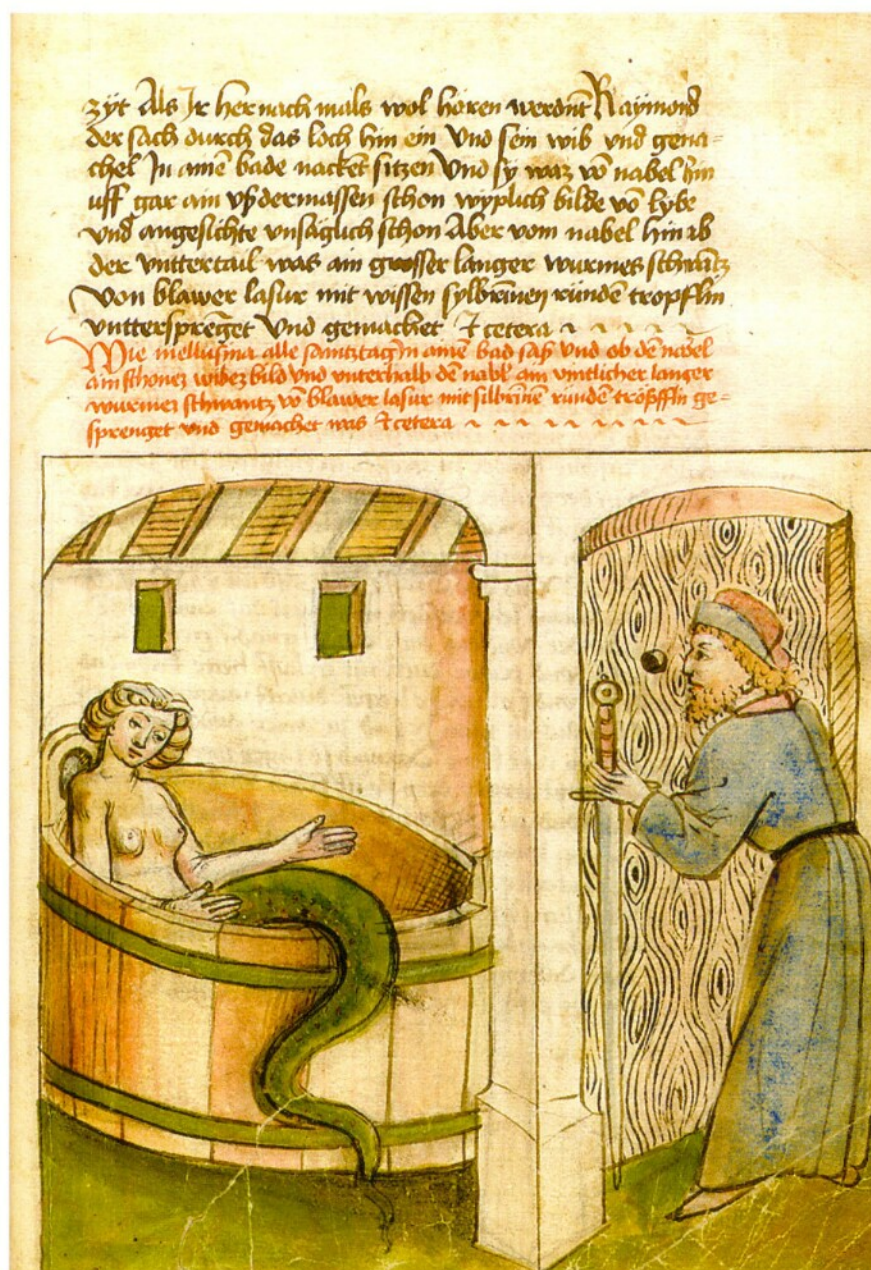 zyt Als Ir her nach mals wol hören werdnt Raymond
der sach durch das loch hin ein Und sein wib und gema-
chel In ainē bade nacket sitzen Und sy waz vō nabel hin
uff gar ain vßdermassen schon wyplich bilde vō lybe
und angesichte vnsäglich schon Aber vom nabel hin ab
der vnttertail was ain grosser langer wurmes schwantz
Von blawer lasur mit wissen sylbrinen runden tropfflin
vnttersprenget Und gemachet Et cetera
Wie mellusina alle samtztag in ainē bad saß vnd ob dē nabel
ain schonez wibez bild vnd vnterhalb dē nabl ain langer
wurmez schwantz vō blawer lasur mit silbrinē runden tröpfflin ge-
sprenget vnd gemachet was Et cetera